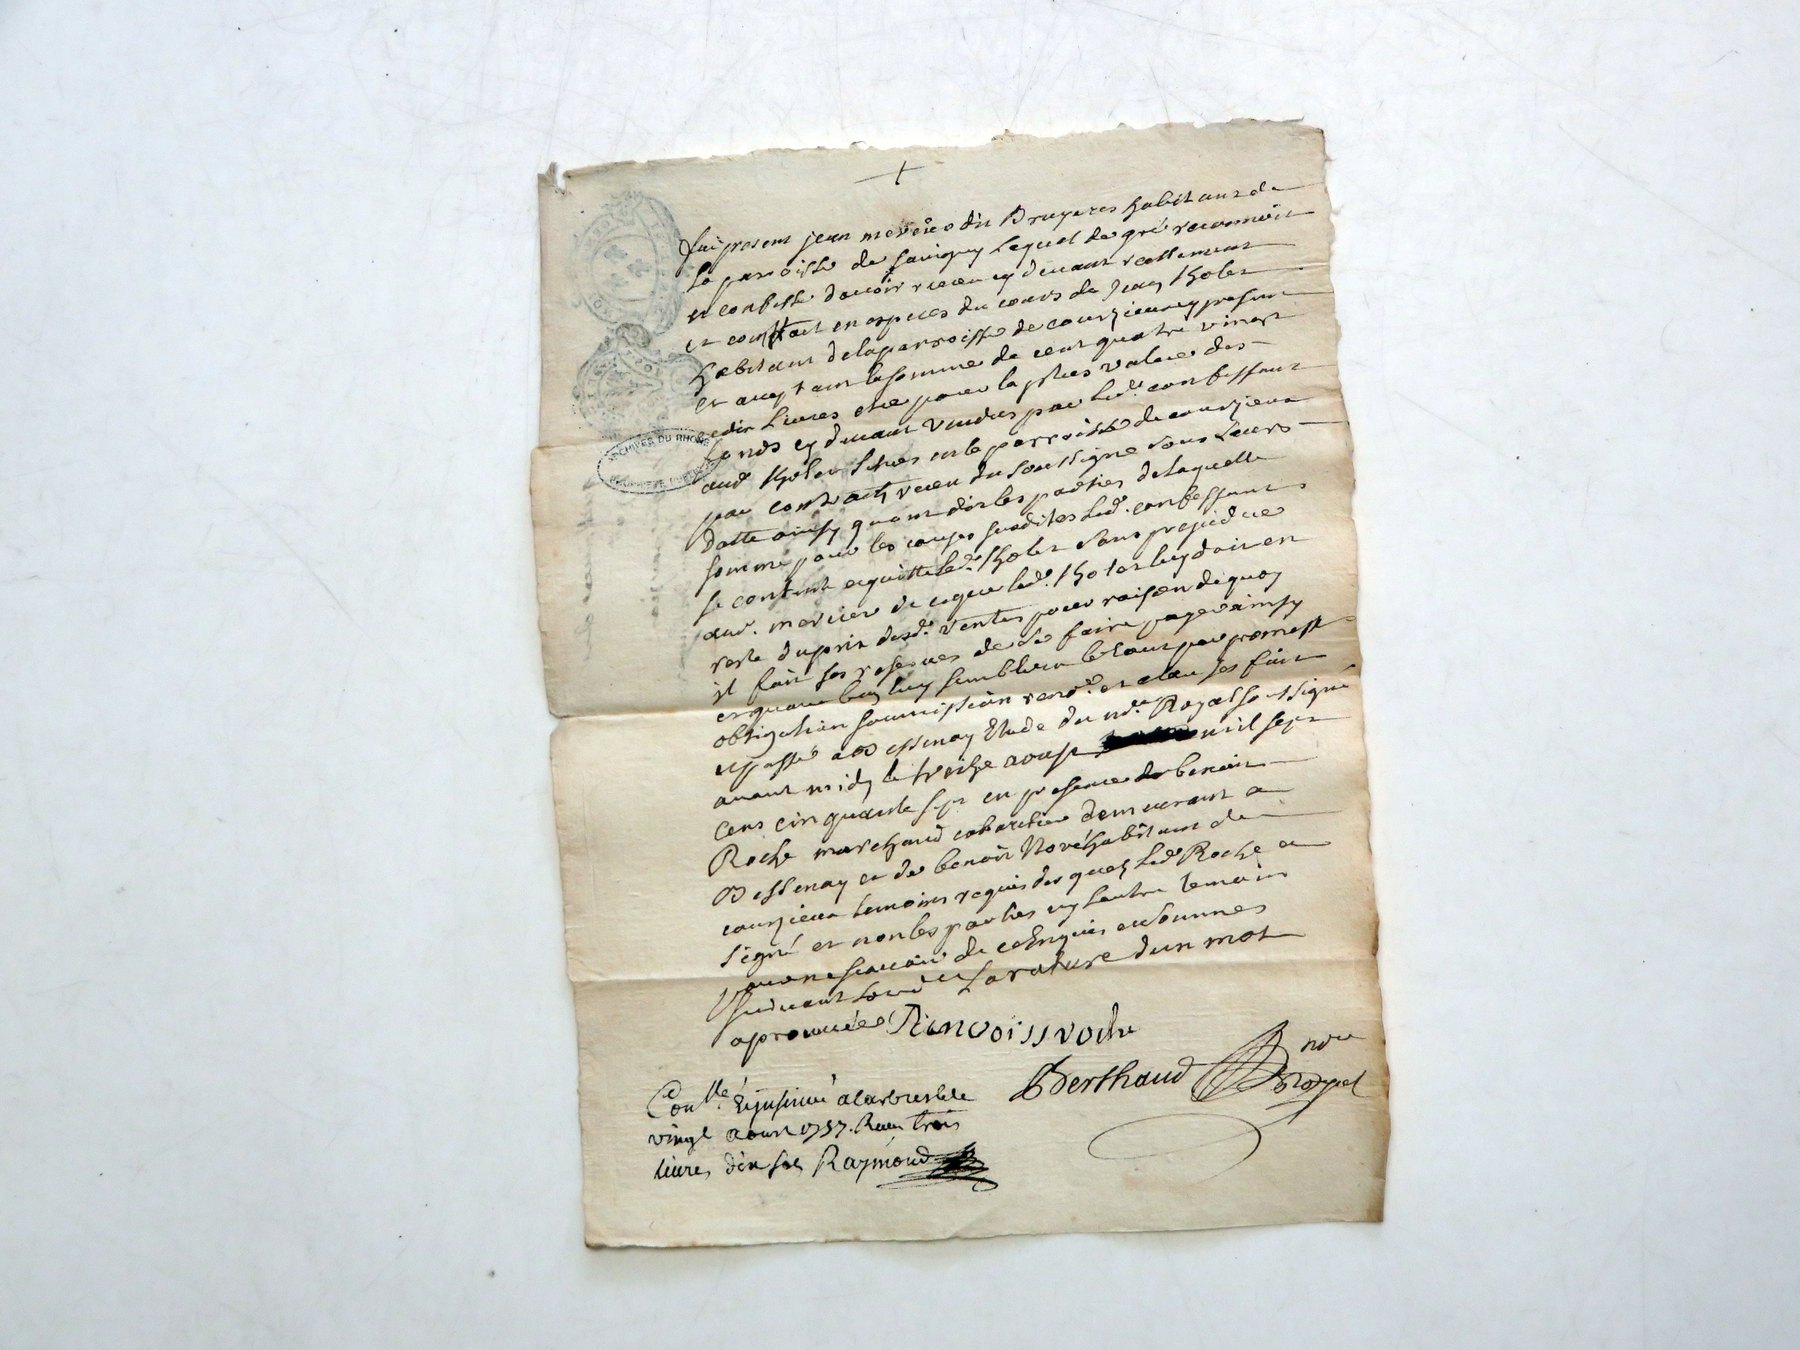 fut present jean mercier dit Bruyeres habitant de
la paroisse de savigny Lequel de gré reconnoit
et confesse d'avoir receu cy devant reellement
et comptant en especes du cours de jean Tholet
habitant de la parroisse de courzieu cy present
et acceptant la somme de cent quatre vingt
dix Livres et ce pour la plus value des
fonds cy devant vendus par led. confessant
aud Tholet situes en la parroisse de courzieu
par contract receu du soussigné sous Leurs
datte ainsy quont dit les parties de laquelle
somme pour les causes susdites led. confessant
se contente en quitte led. Tholet sans prejudice
aud. mercier de ce que led. Tholet luy doit en
reste du prix desd. ventes pour raison de quoy
il fait ses reserves de se faire payer ainsy
et quand bon luy semblera le tout par promesse
obligation soumission renon. et clauses fait
et passé a Bessenay Etude du no.re Royal soussigné
avant midy le treize aoust mil sept
cens cinquante sept en presence de benoit
Roche marchand cabaretier demeurant a
Bessenay et de benoit habitant de
courzieu temoins requis des quels led Roche a
signé et non les parties ny l'autre temoin
pour ne scavoir de ce enquis et sommes
suivant Lord. et La rature d'un mot
aprouvée
Berthaud no.re
Royal
Con.llé insinué a larbresle le
vingt aoust 1757. Recu trois
livres dix sols Raymond
ARCHIVES DU RHONE